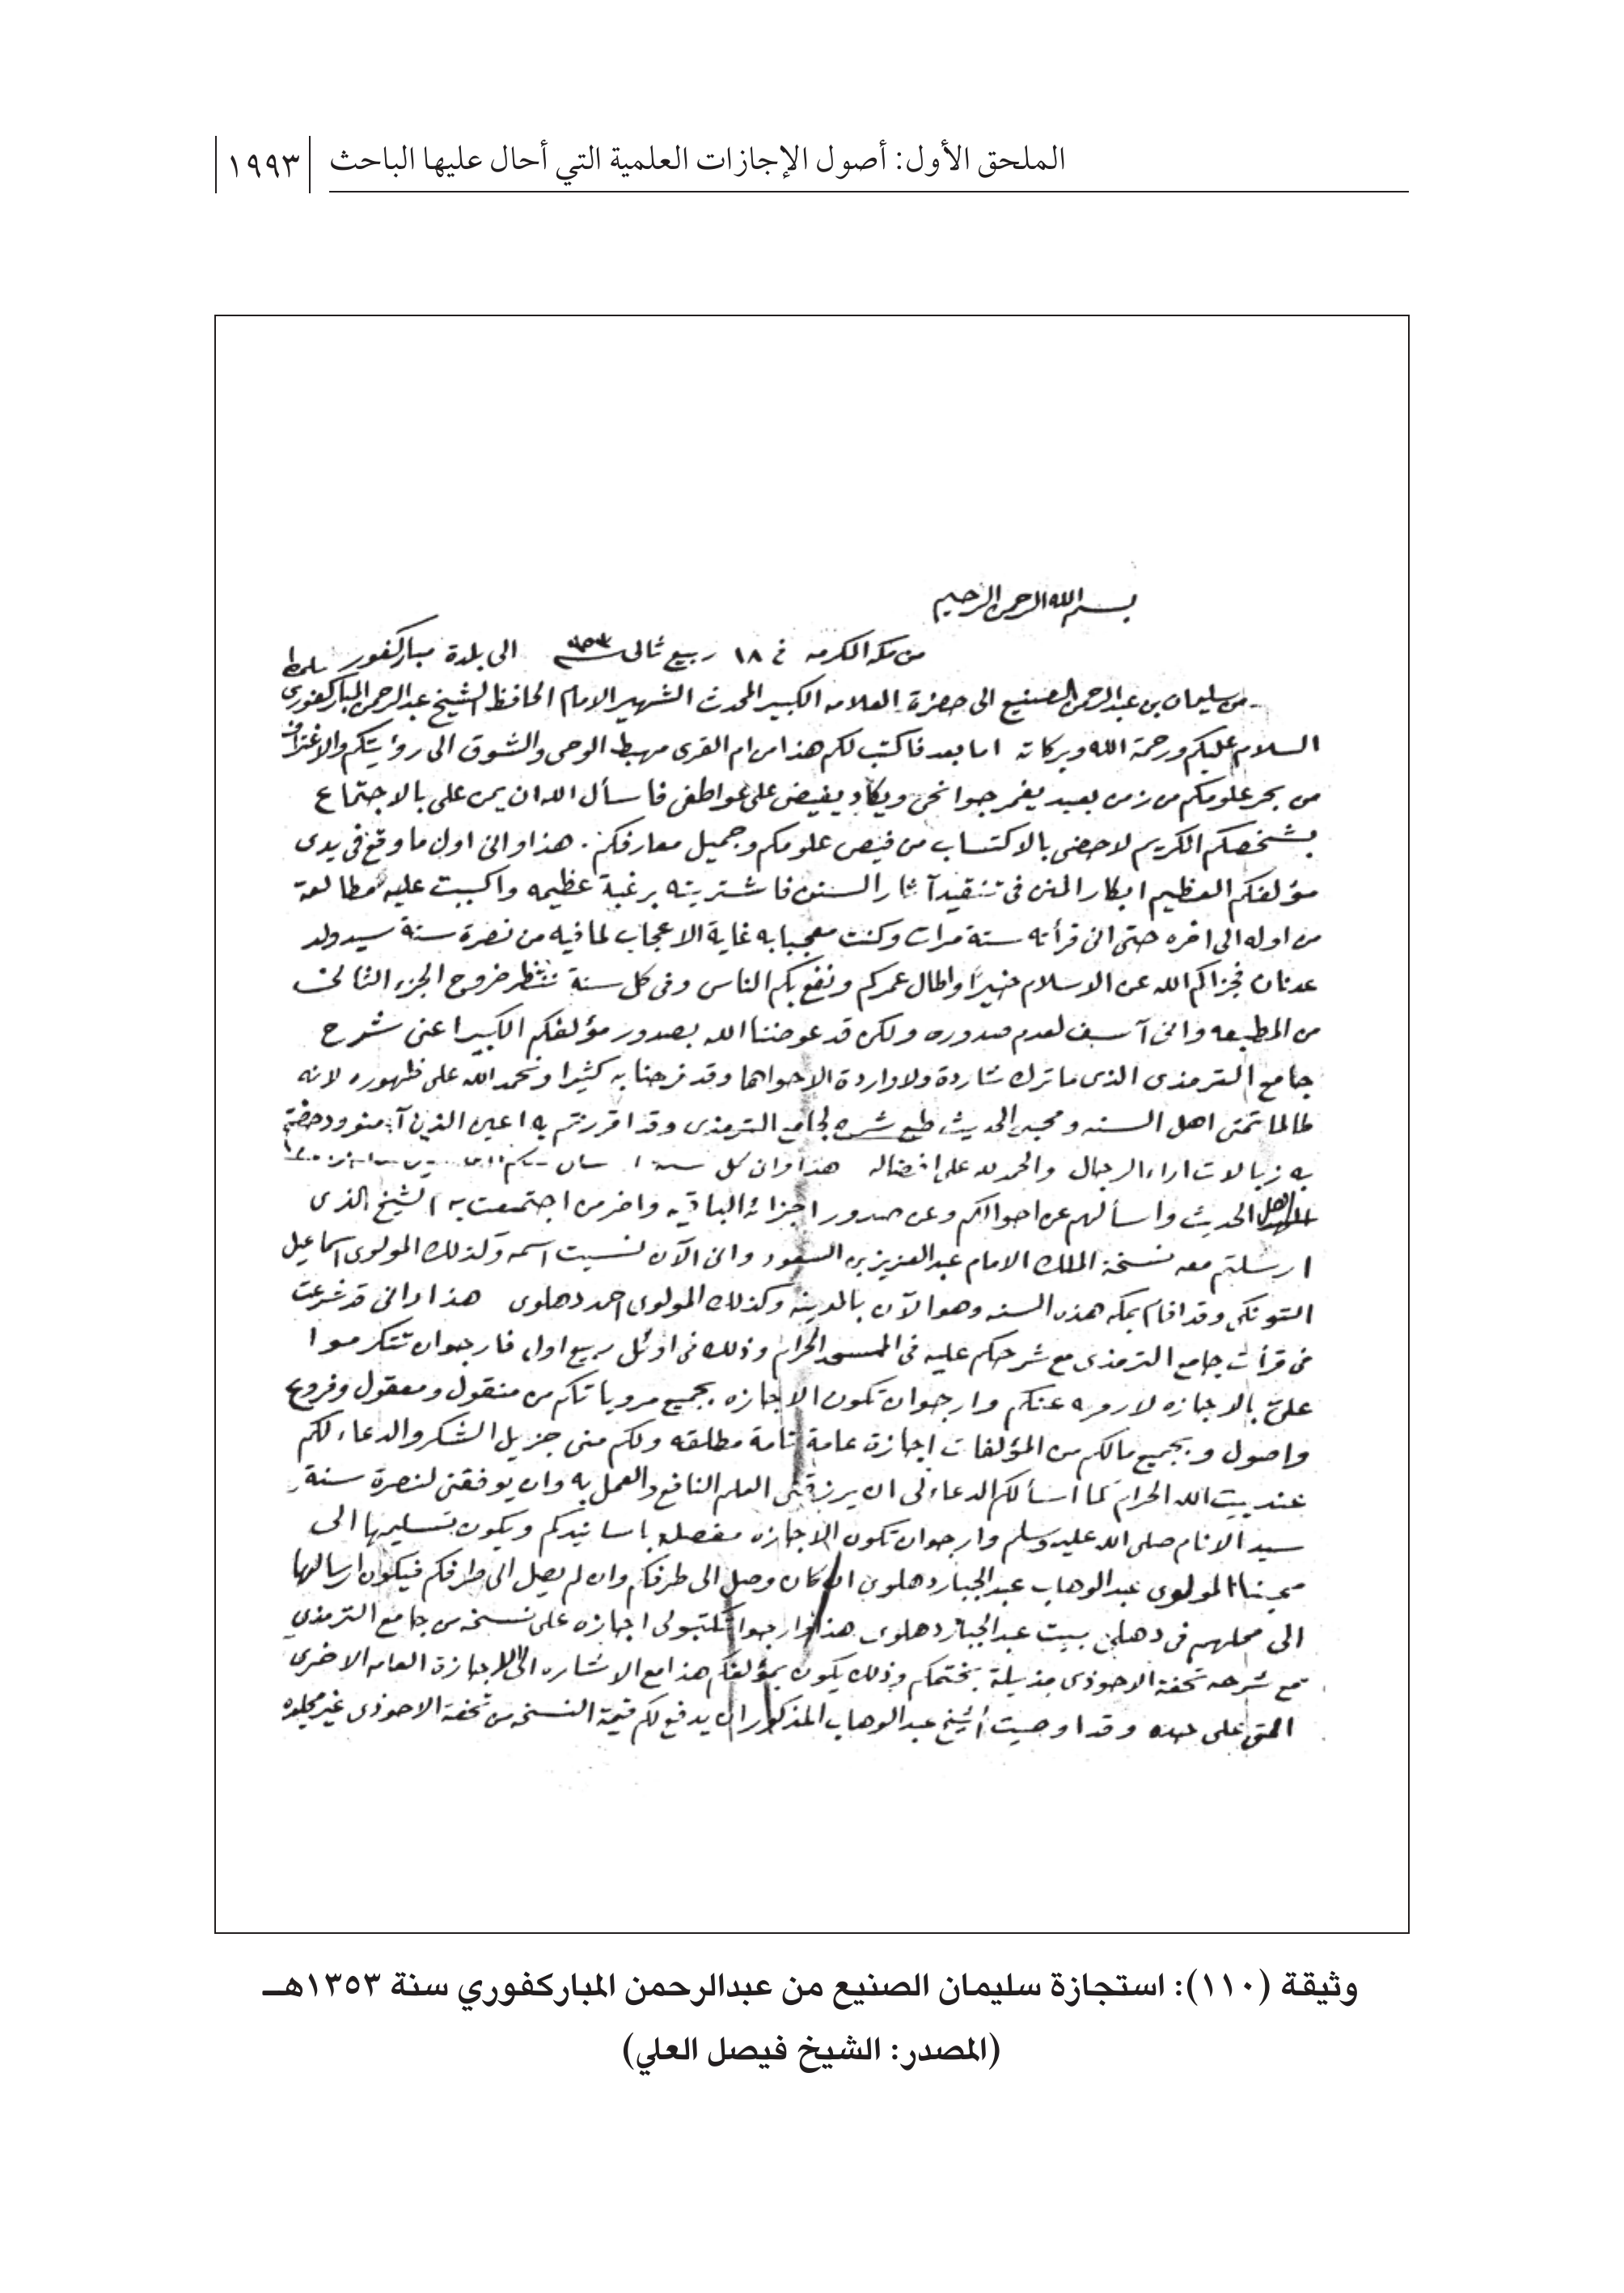 الملحق الأول: أصول الإجازات العلمية التي أحال عليها الباحث ١٩٩٣
بسم الله الرحمن الرحيم
من مكة المكرمه في ١٨ ربيع ثاني ٣٥٣ الى بلدة مباركفور
من سليمان بن عبدالرحمن الصنيع الى حضرة العلامه الكبير المحدث الشهير الامام الحافظ الشيخ عبدالرحمن المباركفوري
السلام عليكم ورحمة الله وبركاته اما بعد فاكتب لكم هذا من ام القرى مهبط الوحى والشوق الى رؤيتكم والاغتراف
من بحر علومكم من زمن بعيد يغمر جوانحي ويكاد يفيض على عواطفى فاسأل الله ان يمن على بالاجتماع
بشخصكم الكريم لاحضى بالاكتساب من فيض علومكم وجميل معارفكم. هذا وانى اول ما وقع فى يدى
مؤلفكم العظيم ابكار المنن فى تنقيد آثار السنن فاشتريته برغبة عظيمه واكببت عليه مطالعة
من اوله الى اخره حتى انى قرأته ستة مرات وكنت معجبا به غاية الاعجاب لما فيه من نصرة سنة سيد ولد
عدنان فجزاكم الله عن الاسلام خيرًا واطال عمركم ونفع بكم الناس وفى كل سنة ننتظر خروج الجزء الثانى
من المطبعه وانى آسف لعدم صدوره ولكن قد عوضنا الله بصدور مؤلفكم الكبير اعنى شرح
جامع الترمذى الذى ما ترك شاردة ولا واردة الا حواها وقد فرحنا به كثيرا ونحمد الله على ظهوره لانه
طالما تمنى اهل السنه ومحبى الحديث طبع شرح لجامع الترمذى وقد اقررتم به اعين الذين آمنو ودحضتم
به زبالات اراء الرجال والحمد لله على افضاله هذا وان كل سنة
اهل الحديث واسألهم عن احوالكم وعن صدور اجزائه الباقيه واخر من اجتمعت به الشيخ الذى
ارسلتم معه نسخة الملك الامام عبدالعزيز بن السعود وانى الآن نسيت اسمه وكذلك المولوى اسماعيل
التونكى وقد اقام بمكه هذه السنه وهو الآن بالمدينه وكذلك المولوى احمد دهلوى هذا وانى قد شرعت
فى قرأت جامع الترمذى مع شرحكم عليه فى المسجد الحرام وذلك فى اوئل ربيع اول فارجوان تتكرموا
علىّ بالاجازه لارويه عنكم وارجوان تكون الاجازه بجميع مروياتكم من منقول ومعقول وفروع
واصول وبجميع مالكم من المؤلفات اجازة عامة تامة مطلقه ولكم منى جزيل الشكر والدعاء لكم
عند بيت الله الحرام كما اسألكم الدعاء لى ان يرزقنى العلم النافع والعمل به وان يوفقنى لنصرة سنة
سيد الانام صلى الله عليه وسلم وارجوان تكون الاجازه مفصله باسانيدكم ويكون تسليمها الى
محبنا المولوى عبدالوهاب عبدالجبار دهلوى ان كان وصل الى طرفكم وان لم يصل الى طرفكم فيكون ارسالها
الى محلهم فى دهلى بيت عبدالجبار دهلوى هذا وارجوا تكتبو لى اجازه على نسخه من جامع الترمذي
مع شرحه تحفة الاحوذى مذيلة بختمكم وذلك يكون بمؤلفكم هذا مع الاشاره الى الاجازة العامه الاخرى
التى على حده وقد اوصيت الشيخ عبدالوهاب المذكور ان يدفع لكم قيمة النسخه من تحفة الاحوذى غير مجلده
وثيقة (١١٠): استجازة سليمان الصنيع من عبدالرحمن المباركفوري سنة ١٣٥٣هـ
(المصدر: الشيخ فيصل العلي)